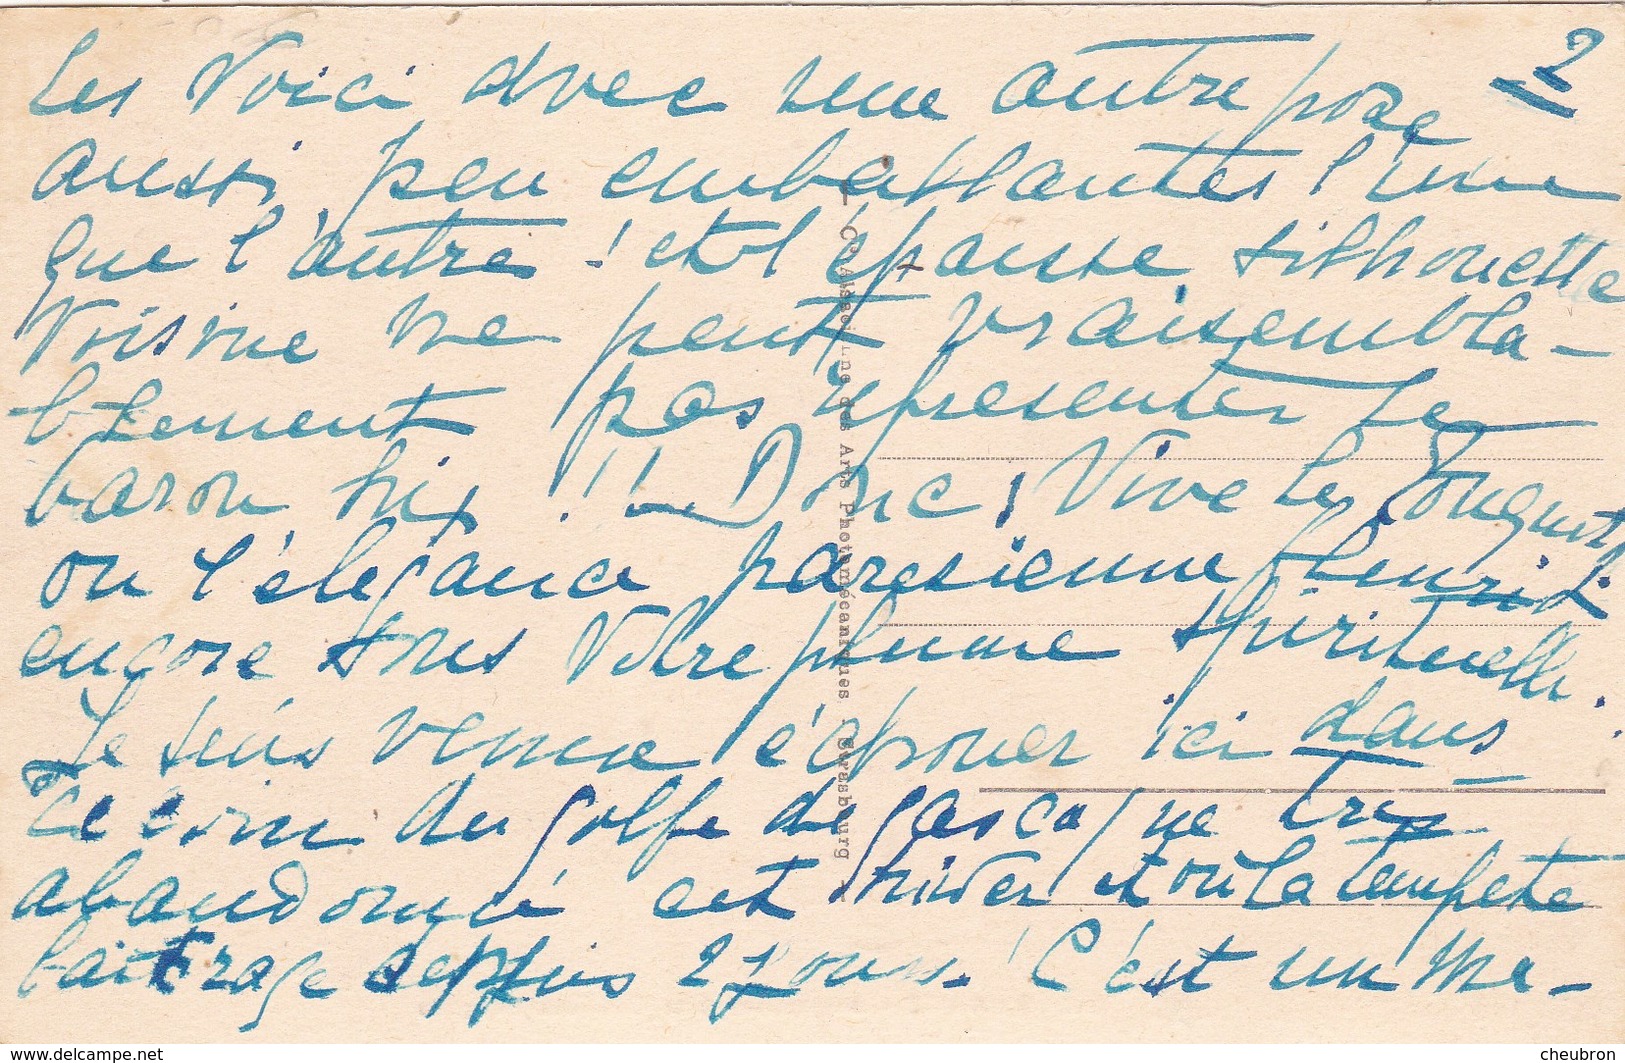 2
Les Voici avec une autre pose
aussi peu emballantes l'une
que l'autre ! et l'épaisse silhouette
Voisine ne peut vraisembla-
blement pas représenter le
baron !! Donc, Vive le Touquet
ou l'élégance parisienne fleurit
encore sous Votre plume spirituelle.
Je suis venue échouer ici dans
ce coin du golfe de gascogne très
abandonné cet hiver et où la tempête
fait rage depuis 2 jours ! C'est un Ma-
Cie Alsacienne des Arts Photomécaniques, Strasbourg
www.delcampe.net
cheubron